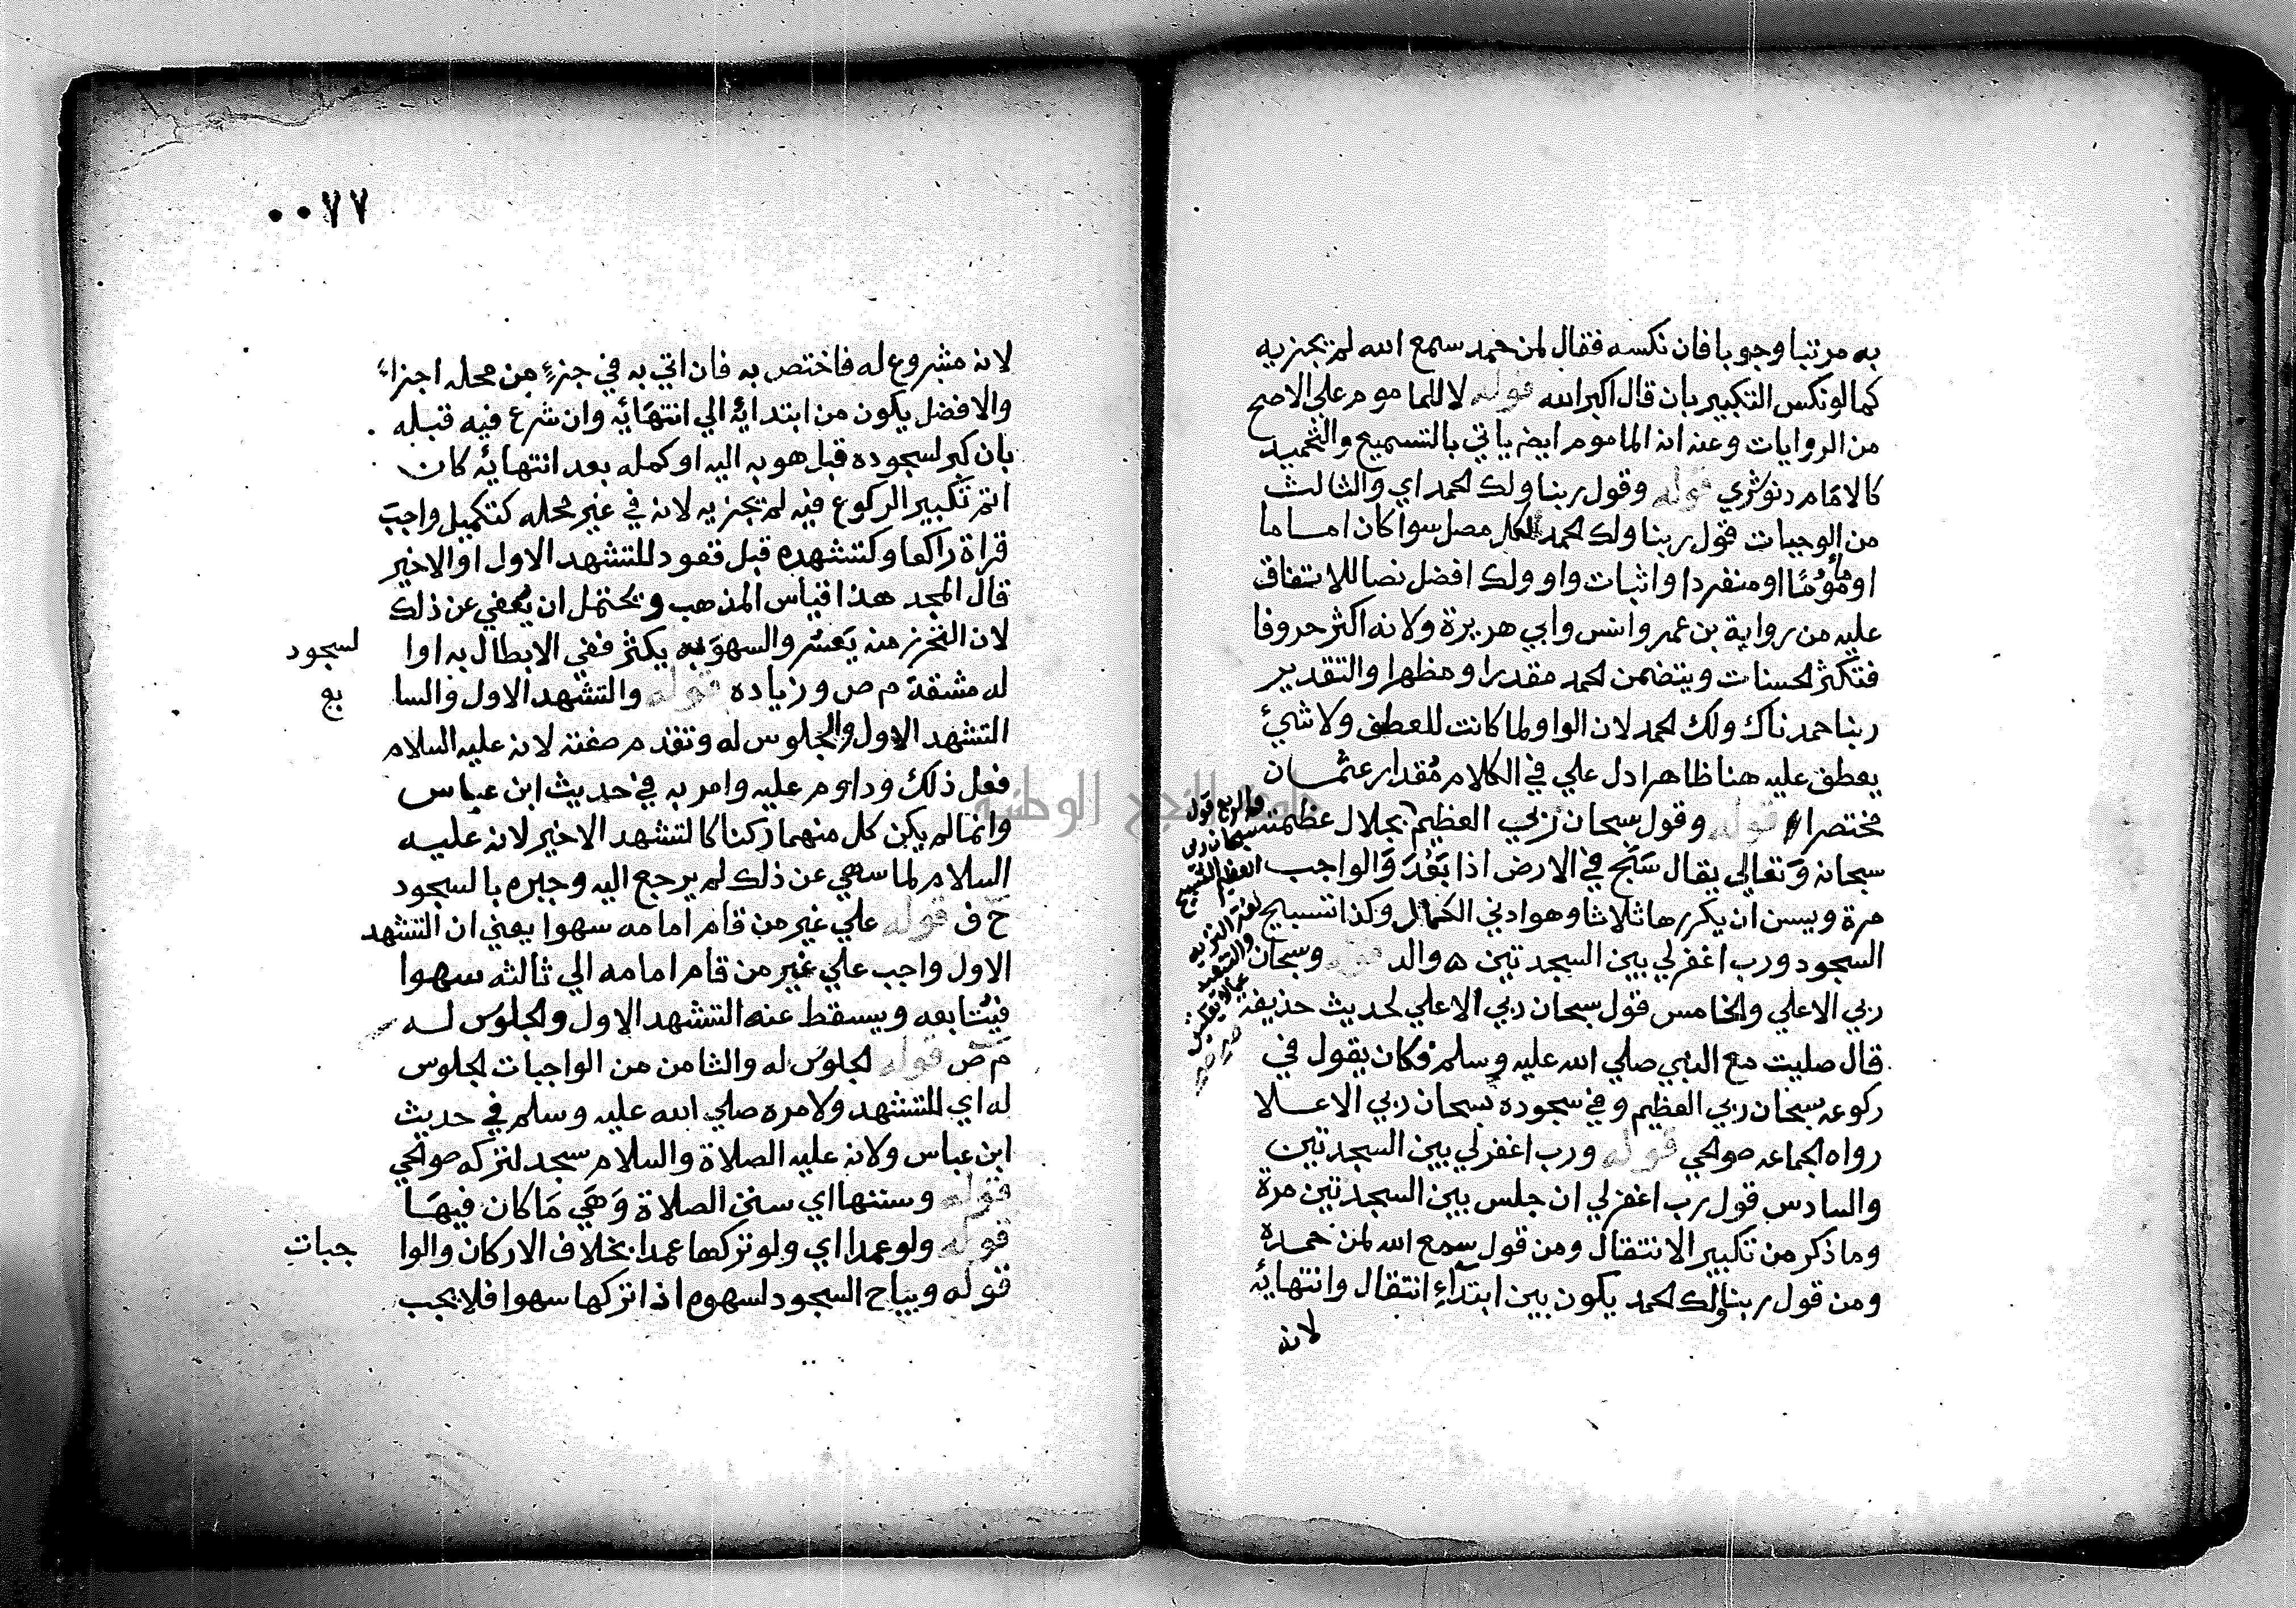 به مرتبا وجوبا فان نكسه فقال لمن حمد سمع الله لم يجزيه
كما لو نكس التكبير بان قال اكبر الله قوله لا للماموم علي الاصح
من الروايات وعنه ان الماموم ايض ياتي بالتسميع والتحميد
كالامام دنوشري قوله وقول ربنا ولك الحمد اي والثالث
من الوجبات قول ربنا ولك الحمد لكل مصل سوا كان اماما
او مأمومًا او منفردا واثبات واو ولك افضل نصا للاتفاق
عليه من رواية بن عمر وانس وابي هريرة ولانه اكثر حروفا
فتكثر الحسنات ويتضمن الحمد مقدرا ومظهرا والتقدير
ربنا حمدناك ولك الحمد لان الواو لما كانت للعطف ولا شيئ
يعطف عليه هنا ظاهرا دل علي في الكلام مُقدار عثمان
مختصرا قوله وقول سبحان ربي العظيم بجلال عظمته
سبحانه وَتعالى يقال سَبَح في الارض اذا بَعُدَ وَالواجب
مرة ويسن ان يكررها ثلاثا وهو ادني الكمال وكذا تسبيح
السجود ورب اغفر لي بين السجدتين ه والد قوله وسبحان
ربي الاعلي والخامس قول سبحان ربي الاعلي لحديث حذيفه
قال صليت مع النبي صلي الله عليه وسلم فكان يقول في
ركوعه سبحان ربي العظيم وفي سجوده سبحان ربي الاعلا
رواه الجماعه صوالحي قوله ورب اغفر لي بين السجدتين
والسادس قول رب اغفر لي ان جلس بين السجدتين مرة
وما ذكر من تكبير الانتقال ومن قول سمع الله لمن حمده
ومن قول ربنا ولك الحمد يكون بين ابتدآءِ انتقال وانتهائه
لانه
والرابع قول
سبحان ربي
العظيم التسبيح
لغة التنزيه
والتبعيد
٠٠٧٧
لانه مشروع له فاختص به فان اتي به في جزءٍ من محله اجزاء
والافضل يكون من ابتدائه الي انتهَائِه وان شرع فيه قبله
بان كبر لسجوده قبل هويه اليه او كمله بعد انتهائه كان
اتم تكبير الركوع فيه لم يجزيه لانه في غير محله كتكميل واجبَ
قراة راكعا وكتشهده قبل قعود للتشهد الاول او الاخير
قال المجد هذا قياس المذهب ويحتمل ان يُعفي عن ذلك
لان التحرز منه يَعسُر والسهوَ به يكثر ففي الابطال به او ا
لسجود
له مشقة م ص وزياده قوله والتشهد الاول والسا
بع
التشهد الاول والجلوس له وتقدم صفته لانه عليه السلام
فعل ذلك وداوم عليه وامر به في حديث ابن عباس
وانما لم يكن كل منهما ركنا كالتشهد الاخير لانه عليه
السلام لما سهي عن ذلك لم يرجع اليه وجبره بالسجود
ح ف قوله علي غير من قام امامه سهوا يعني ان التشهد
الاول واجب علي غير من قام امامه الي ثالثه سهوا
فيُتابعه ويسقط عنه التشهد الاول والجلوس له
م ص قوله الجلوس له والثامن من الواجبات الجلوس
له اي للتشهد ولامره صلي الله عليه وسلم في حديث
ابن عباس ولانه عليه الصلاة والسلام سجد لتركه صوالحي
قوله وسننها اي سنن الصلاة وَهَي مَا كان فيهَا
قوله ولو عمدا اي ولو تركها عمدا بخلاف الاركان والوا
جبات
قوله ويباح السجود لسهوه اذا تركها سهوا فلا يجب
جامعة النجاح الوطنية